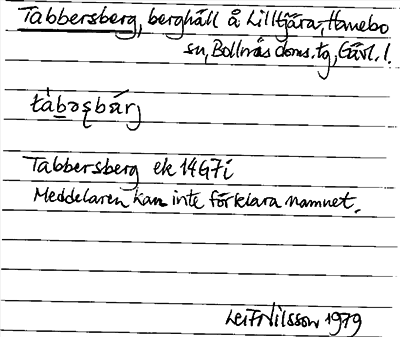 Tabbersberg, berghäll å Lilltjära, Hanebo
sn, Bollnäs doms. tg, Gävl. l.
tàbəʂbærj
Tabbersberg ek 14G7i
Meddelaren kan inte förklara namnet.
Leif Nilsson 1979